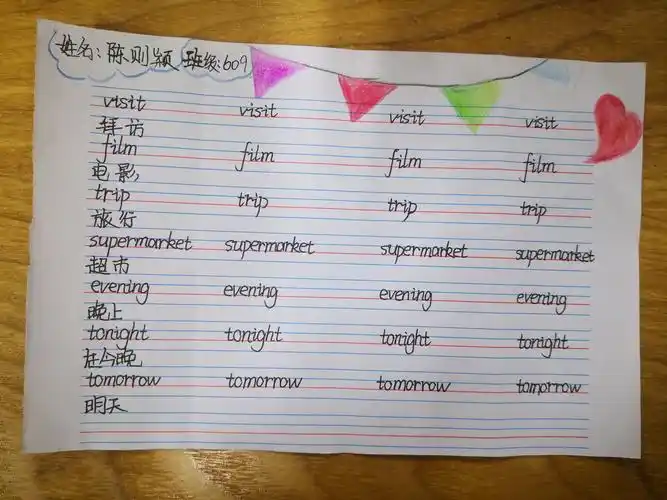 姓名：陈则颖 班级：609
visit visit visit visit
拜访
film film film film
电影
trip trip trip trip
旅行
supermarket supermarket supermarket supermarket
超市
evening evening evening evening
晚上
tonight tonight tonight tonight
在今晚
tomorrow tomorrow tomorrow tomorrow
明天